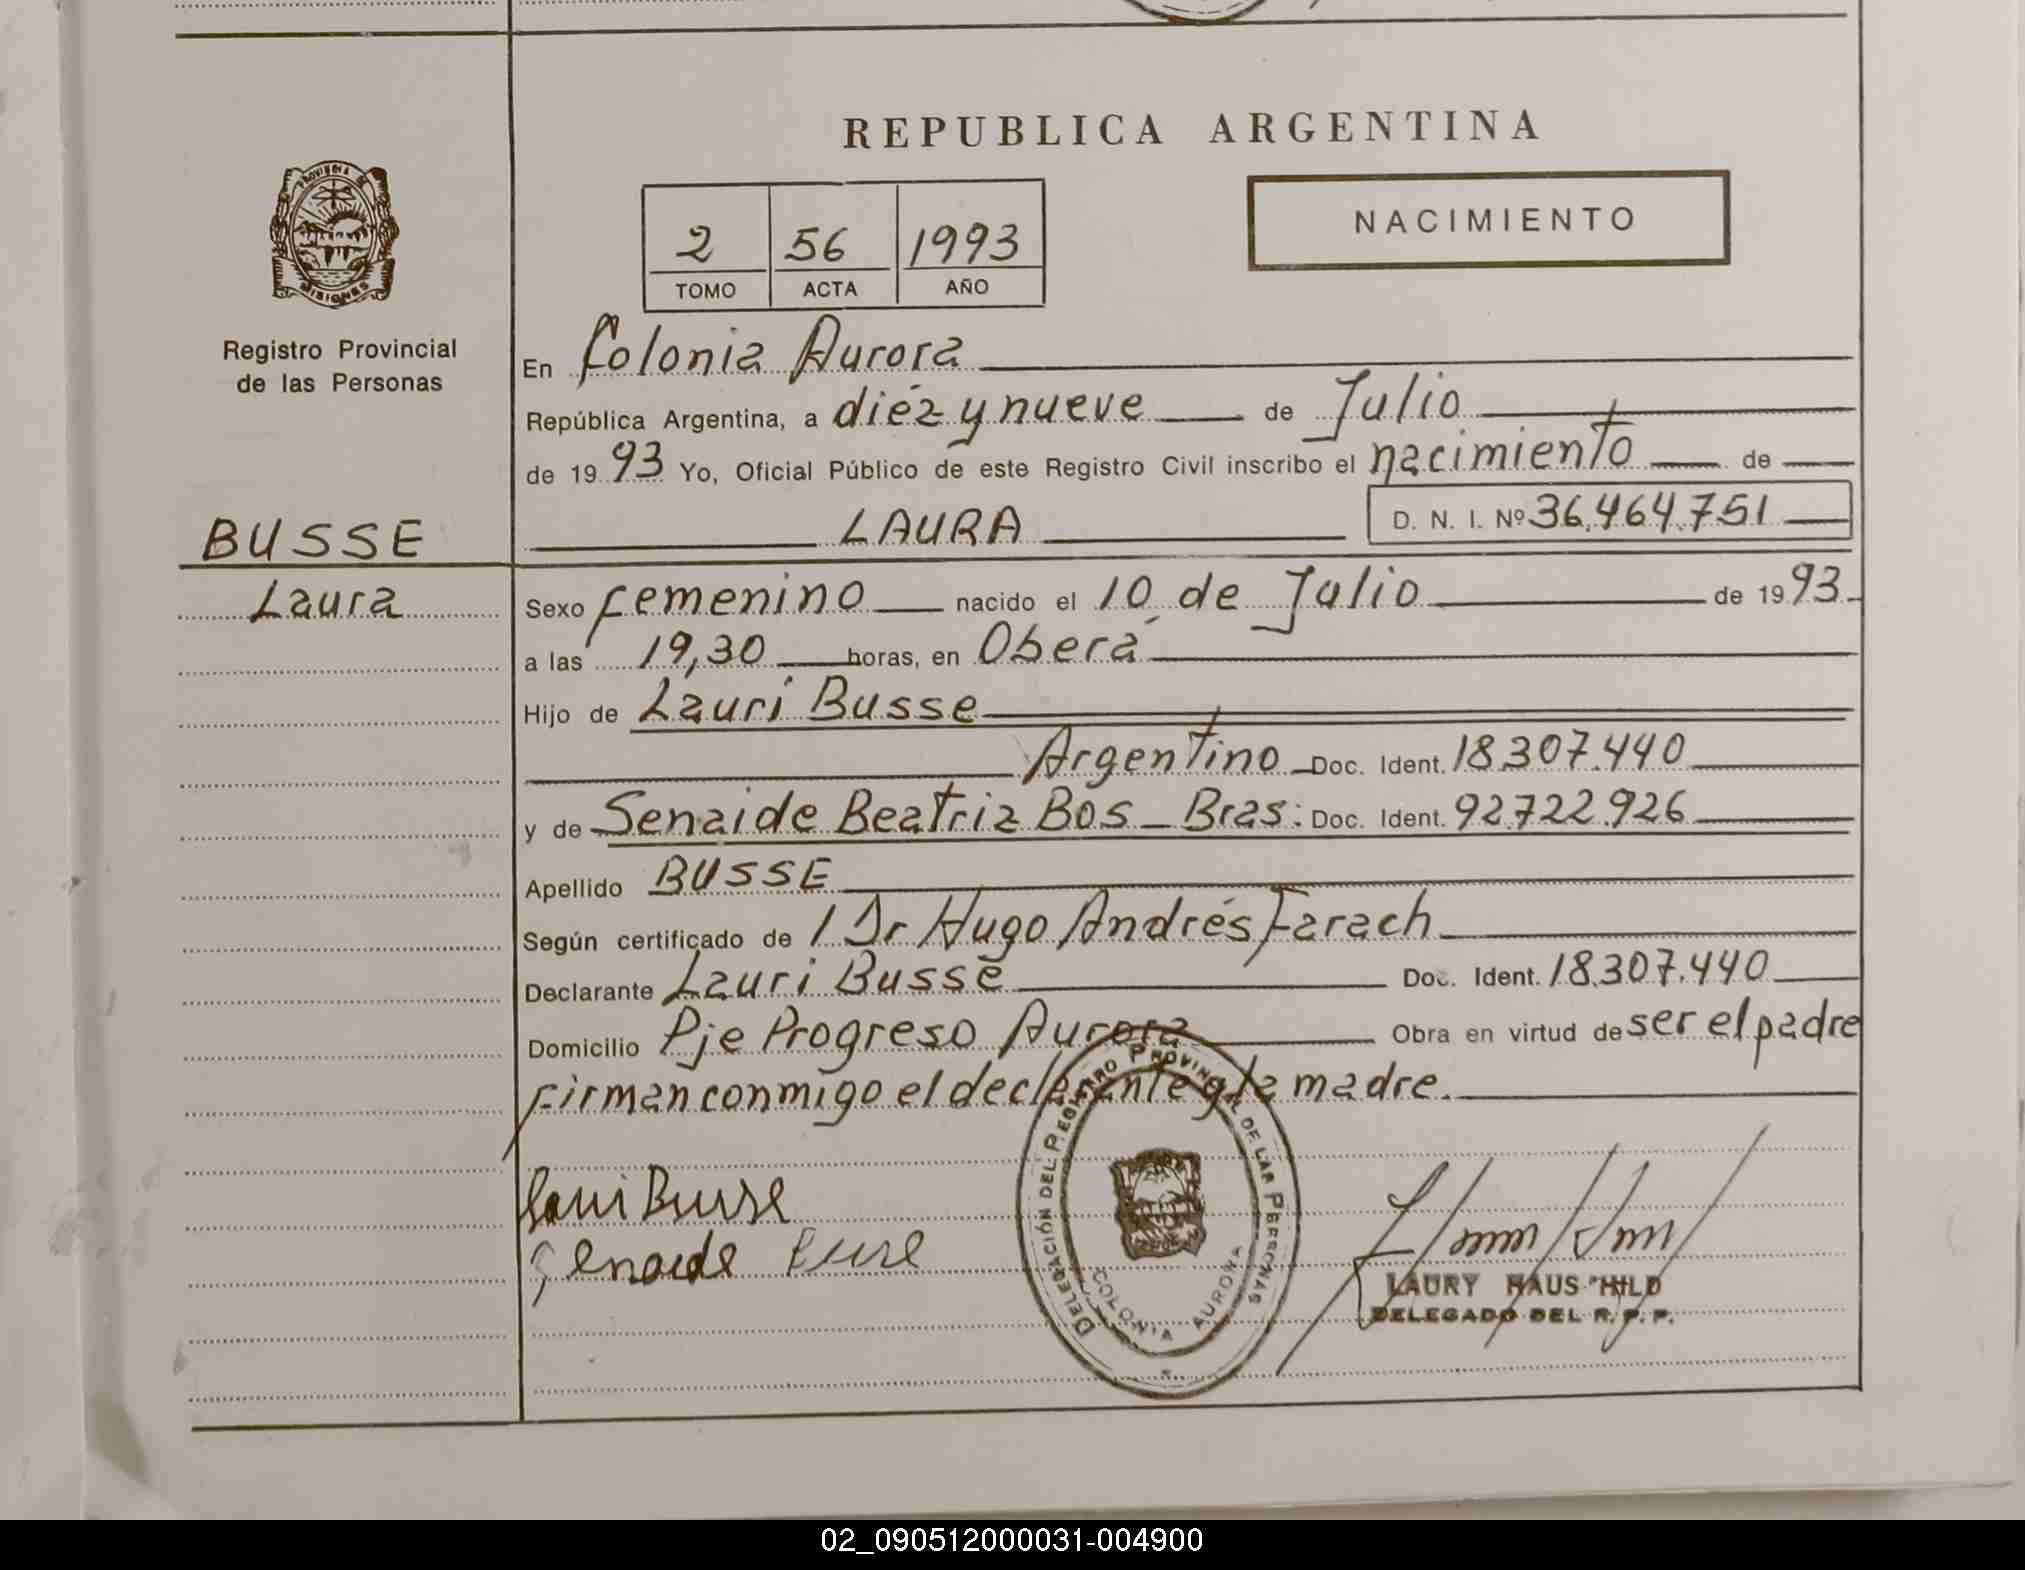 REPUBLICA ARGENTINA
NACIMIENTO
2 56 1993
TOMO ACTA AÑO
PROVINCIA DE
MISIONES
Registro Provincial
de las Personas
BUSSE
Laura
En Colonia Aurora
República Argentina, a diéz y nueve de Julio
de 1993 Yo, Oficial Público de este Registro Civil inscribo el nacimiento de
LAURA D. N. I. Nº 36.464.751
Sexo Femenino nacido el 10 de Julio de 1993
a las 19,30 horas, en Oberá
Hijo de Lauri Busse
Argentino Doc. Ident. 18.307.440
y de Senaide Beatriz Bos - Bras: Doc. Ident. 92.722.926
Apellido BUSSE
Según certificado de / Dr Hugo Andrés Farach
Declarante Lauri Busse Doc. Ident. 18.307.440
Domicilio Pje Progreso Aurora Obra en virtud de ser el padre
Firman conmigo el declarante y la madre.
Lauri Busse
Senaide Busse
DELEGACIÓN DEL REGISTRO PROVINCIAL DE LAS PERSONAS
COLONIA AURORA
LAURY HAUSCHILD
DELEGADO DEL R. P. P.
02_090512000031-004900